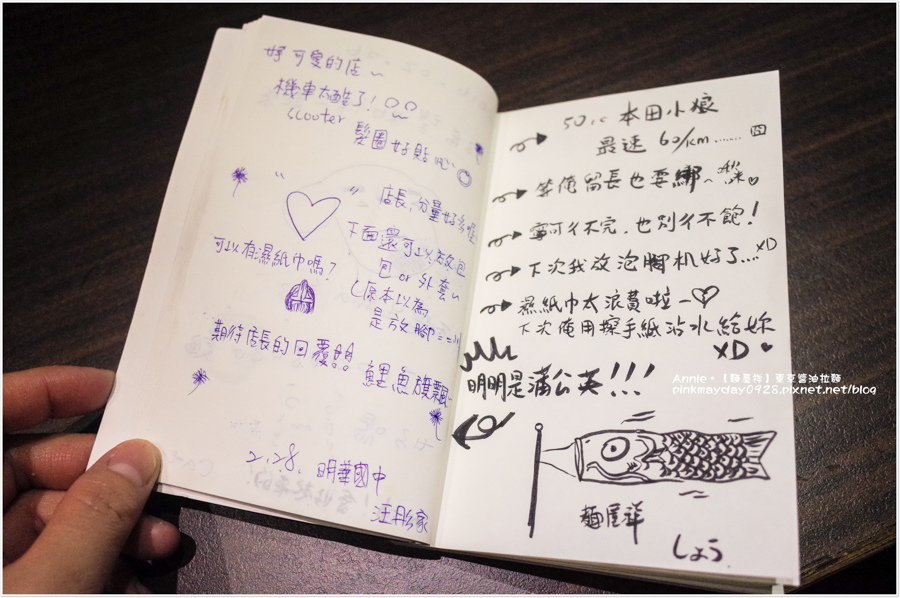 好可愛的店~
機車太酷了!
scooter
髮圈好貼心
店長,分量好多喔
下面還可以放包
包 or 外套~
(原本以為
是放腳==
可以有濕紙巾嗎?
期待店長的回覆
鯉魚旗飄~
2.28. 明華國中
汪彤家
50cc 本田小狼
最速 60/km......
等俺留長也要綁~
寧可ㄔ不完,也別ㄔ不飽!
下次我放泡腳机好了...XD
濕紙巾太浪費啦~
下次俺用擦手紙沾水給妳
XD
明明是蒲公英!!!
麵屋祥
しょう
Annie。【麵屋祥】東京醬油拉麵
pinkmayday0928.pixnet.net/blog